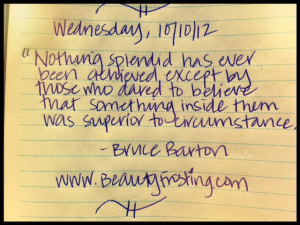 Wednesday, 10/10/12
"Nothing splendid has ever
been achieved except by
those who dared to believe
that something inside them
was superior to circumstance.
- Bruce Barton
www.Beautyfrosting.com